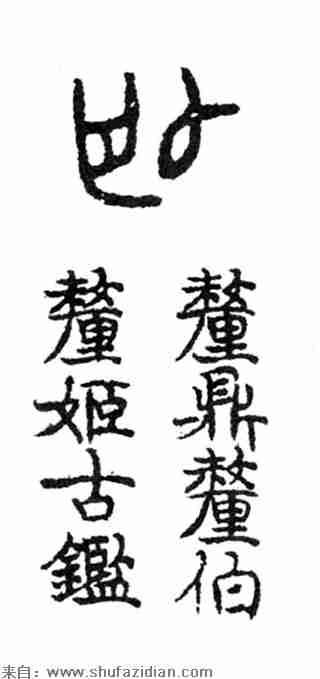 姬
釐鼎釐伯
釐姬古鑑
来自：www.shufazidian.com